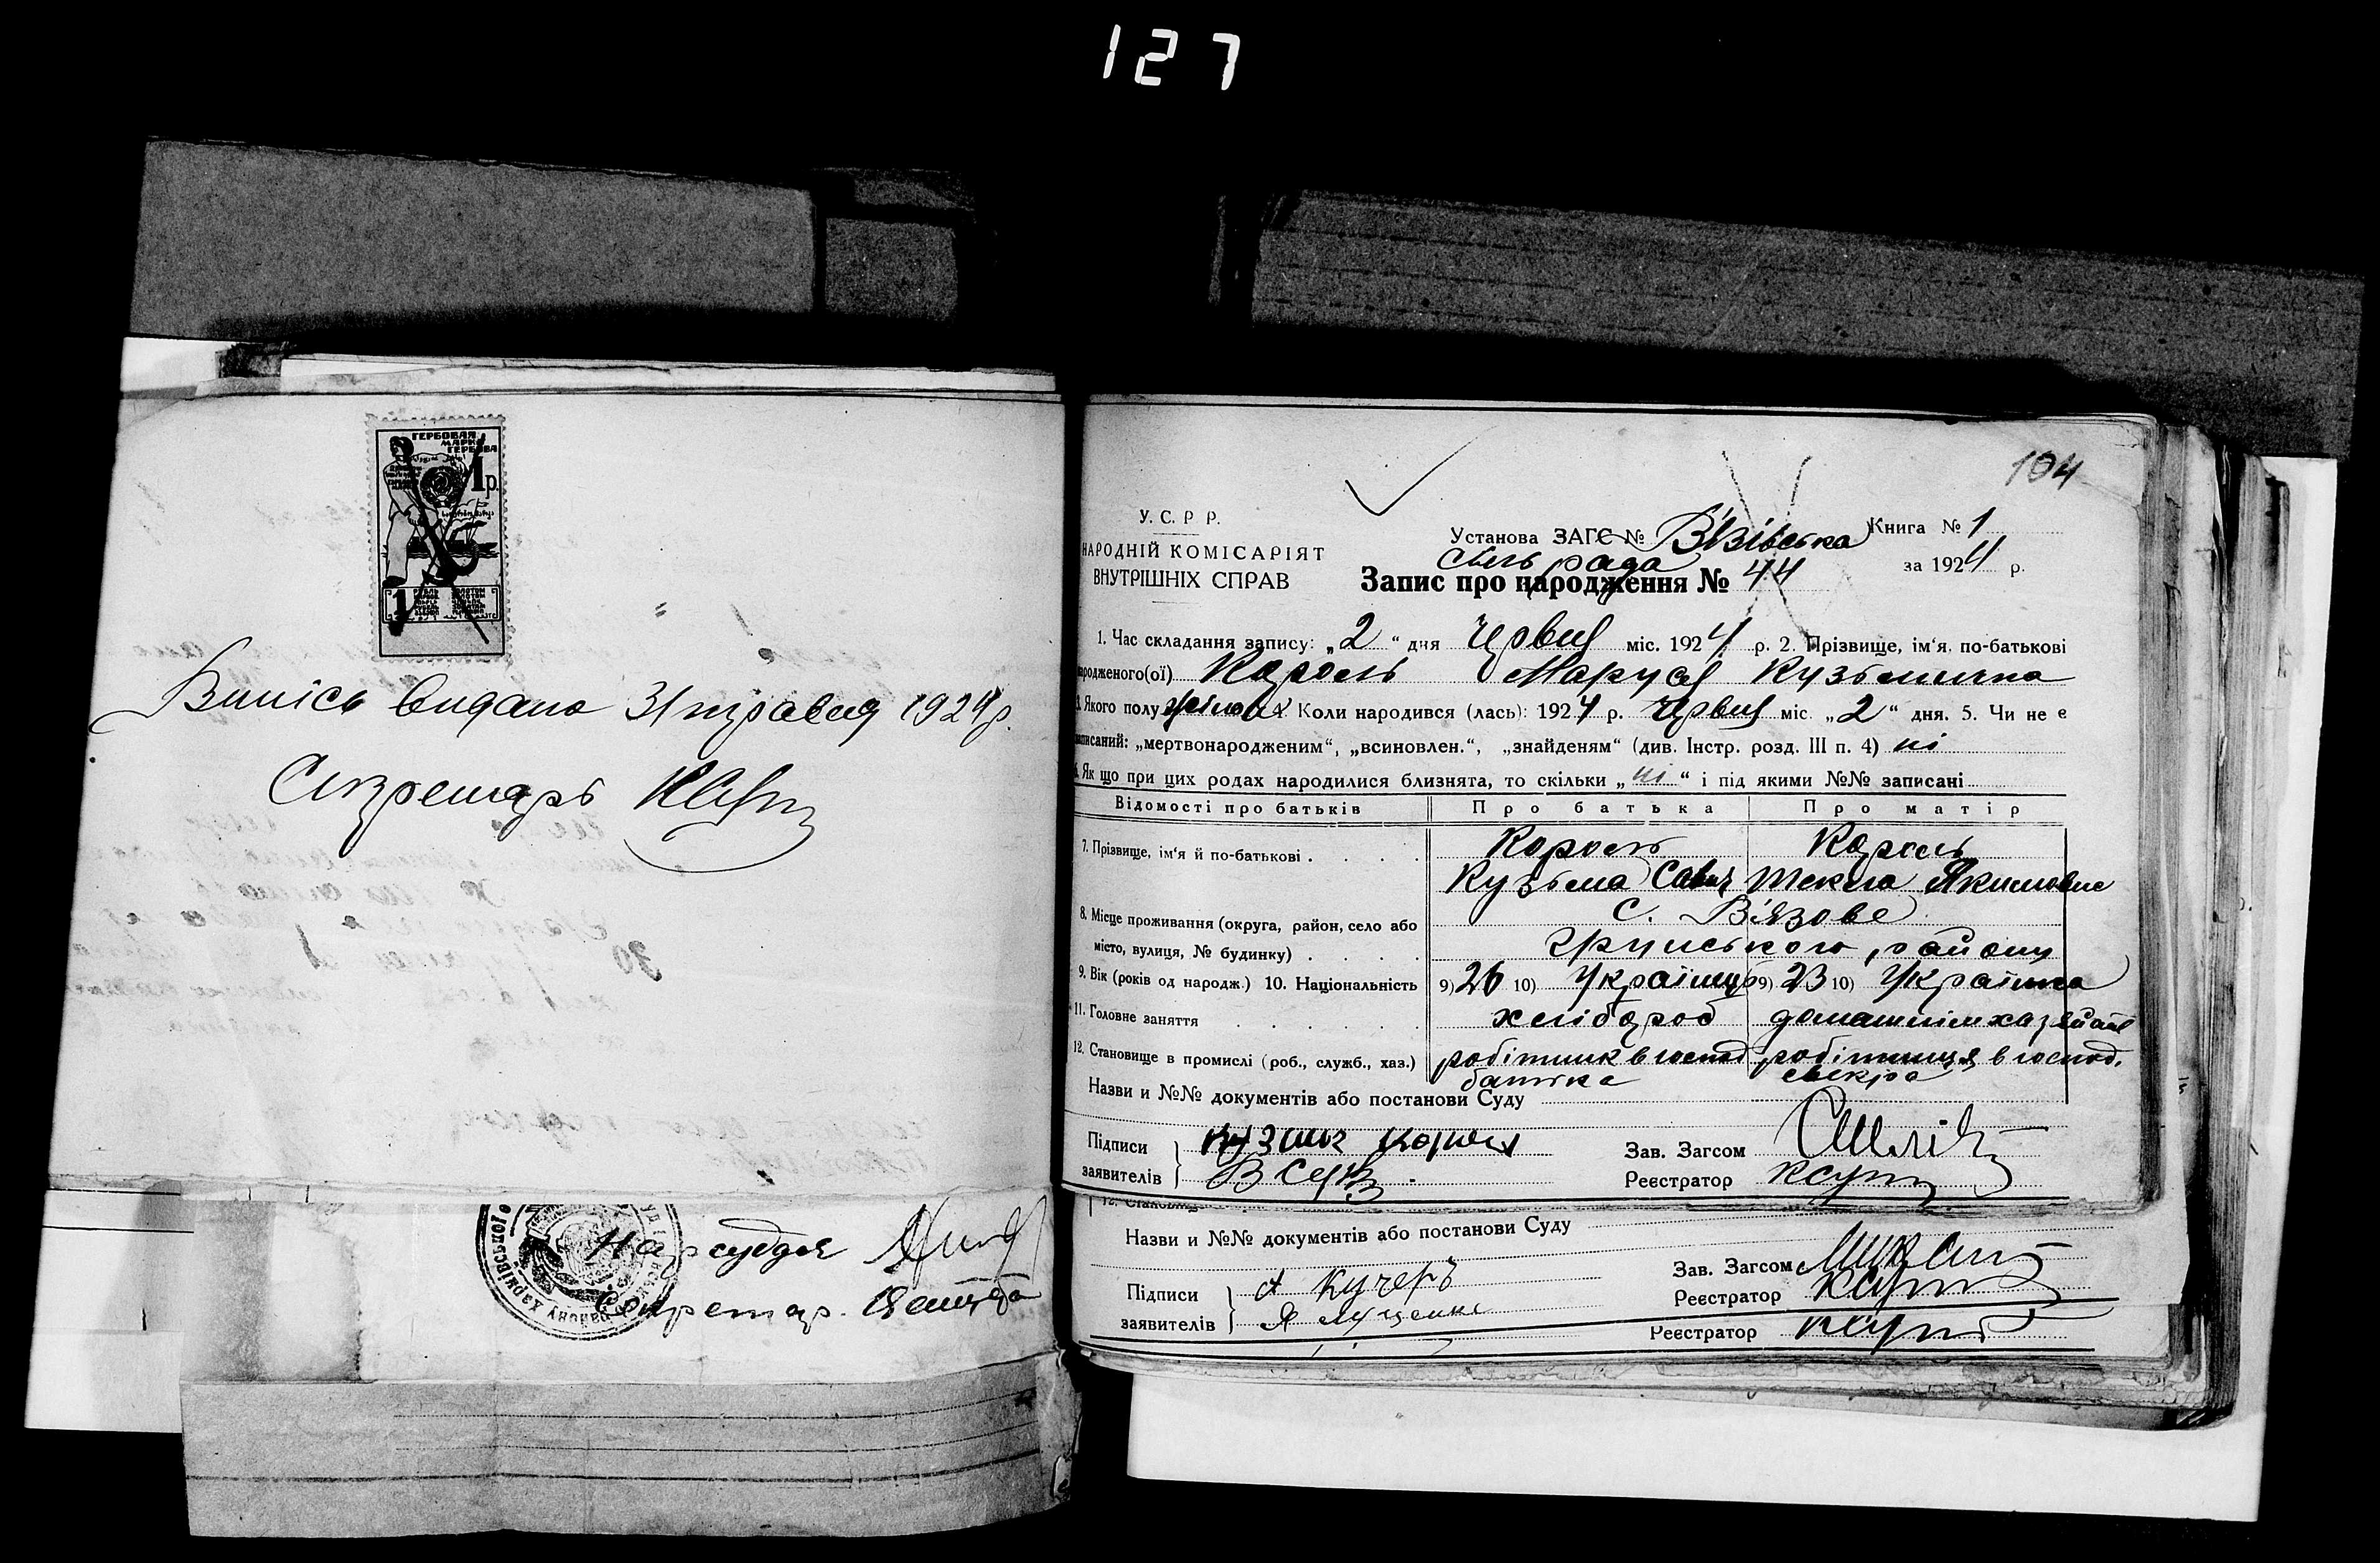 127
ГЕРБОВАЯ
МАРКА
ГЕРБОВА
1 р.
1
Випісь видана 31 травня 1924 р.
Секретарь
Нарсуддя
Секретар
104
У. С. Р Р.
НАРОДНІЙ КОМІСАРІЯТ
ВНУТРІШНІХ СПРАВ
Установа ЗАГС № В'язівська
сільрада
Книга № 1
за 1924 р.
Запис про народження № 44
1. Час складання запису: „2“ дня Червня міс. 1924 р. 2. Прізвище, ім'я, по-батькові
народженого(ої) Король Маруся Кузьмична
3. Якого полу жіноч. 4. Коли народився (лась): 1924 р. Червня міс. „2“ дня. 5. Чи не є
записаний: „мертвонародженим“, „всиновлен.“, „знайденям“ (див. Інстр. розд. III п. 4) ні
6. Як що при цих родах народилися близнята, то скільки „ні“ і під якими №№ записані
Відомості про батьків Про батька Про матір
7. Прізвище, ім'я й по-батькові . . . . Король Король
Кузьма Савич Текля Якимовна
8. Місце проживання (округа, район, село або с. В'язове
місто, вулиця, № будинку) . . . . Грунського району
9. Вік (років од народж.) 10. Національність 9) 26 10) Українець 9) 23 10) Українка
11. Головне заняття . . . . . хлібороб домашнім хазяйств
12. Становище в промислі (роб., служб., хаз.) робітник в господ. робітниця в господ.
батька свекра
Назви и №№ документів або постанови Суду
Підписи
заявителів
Кузма Король
Зав. Загсом
Реєстратор
12. Становище
Назви и №№ документів або постанови Суду
Підписи
заявителів
А Кучеръ
Я Луценко
Зав. Загсом
Реєстратор
Реєстратор